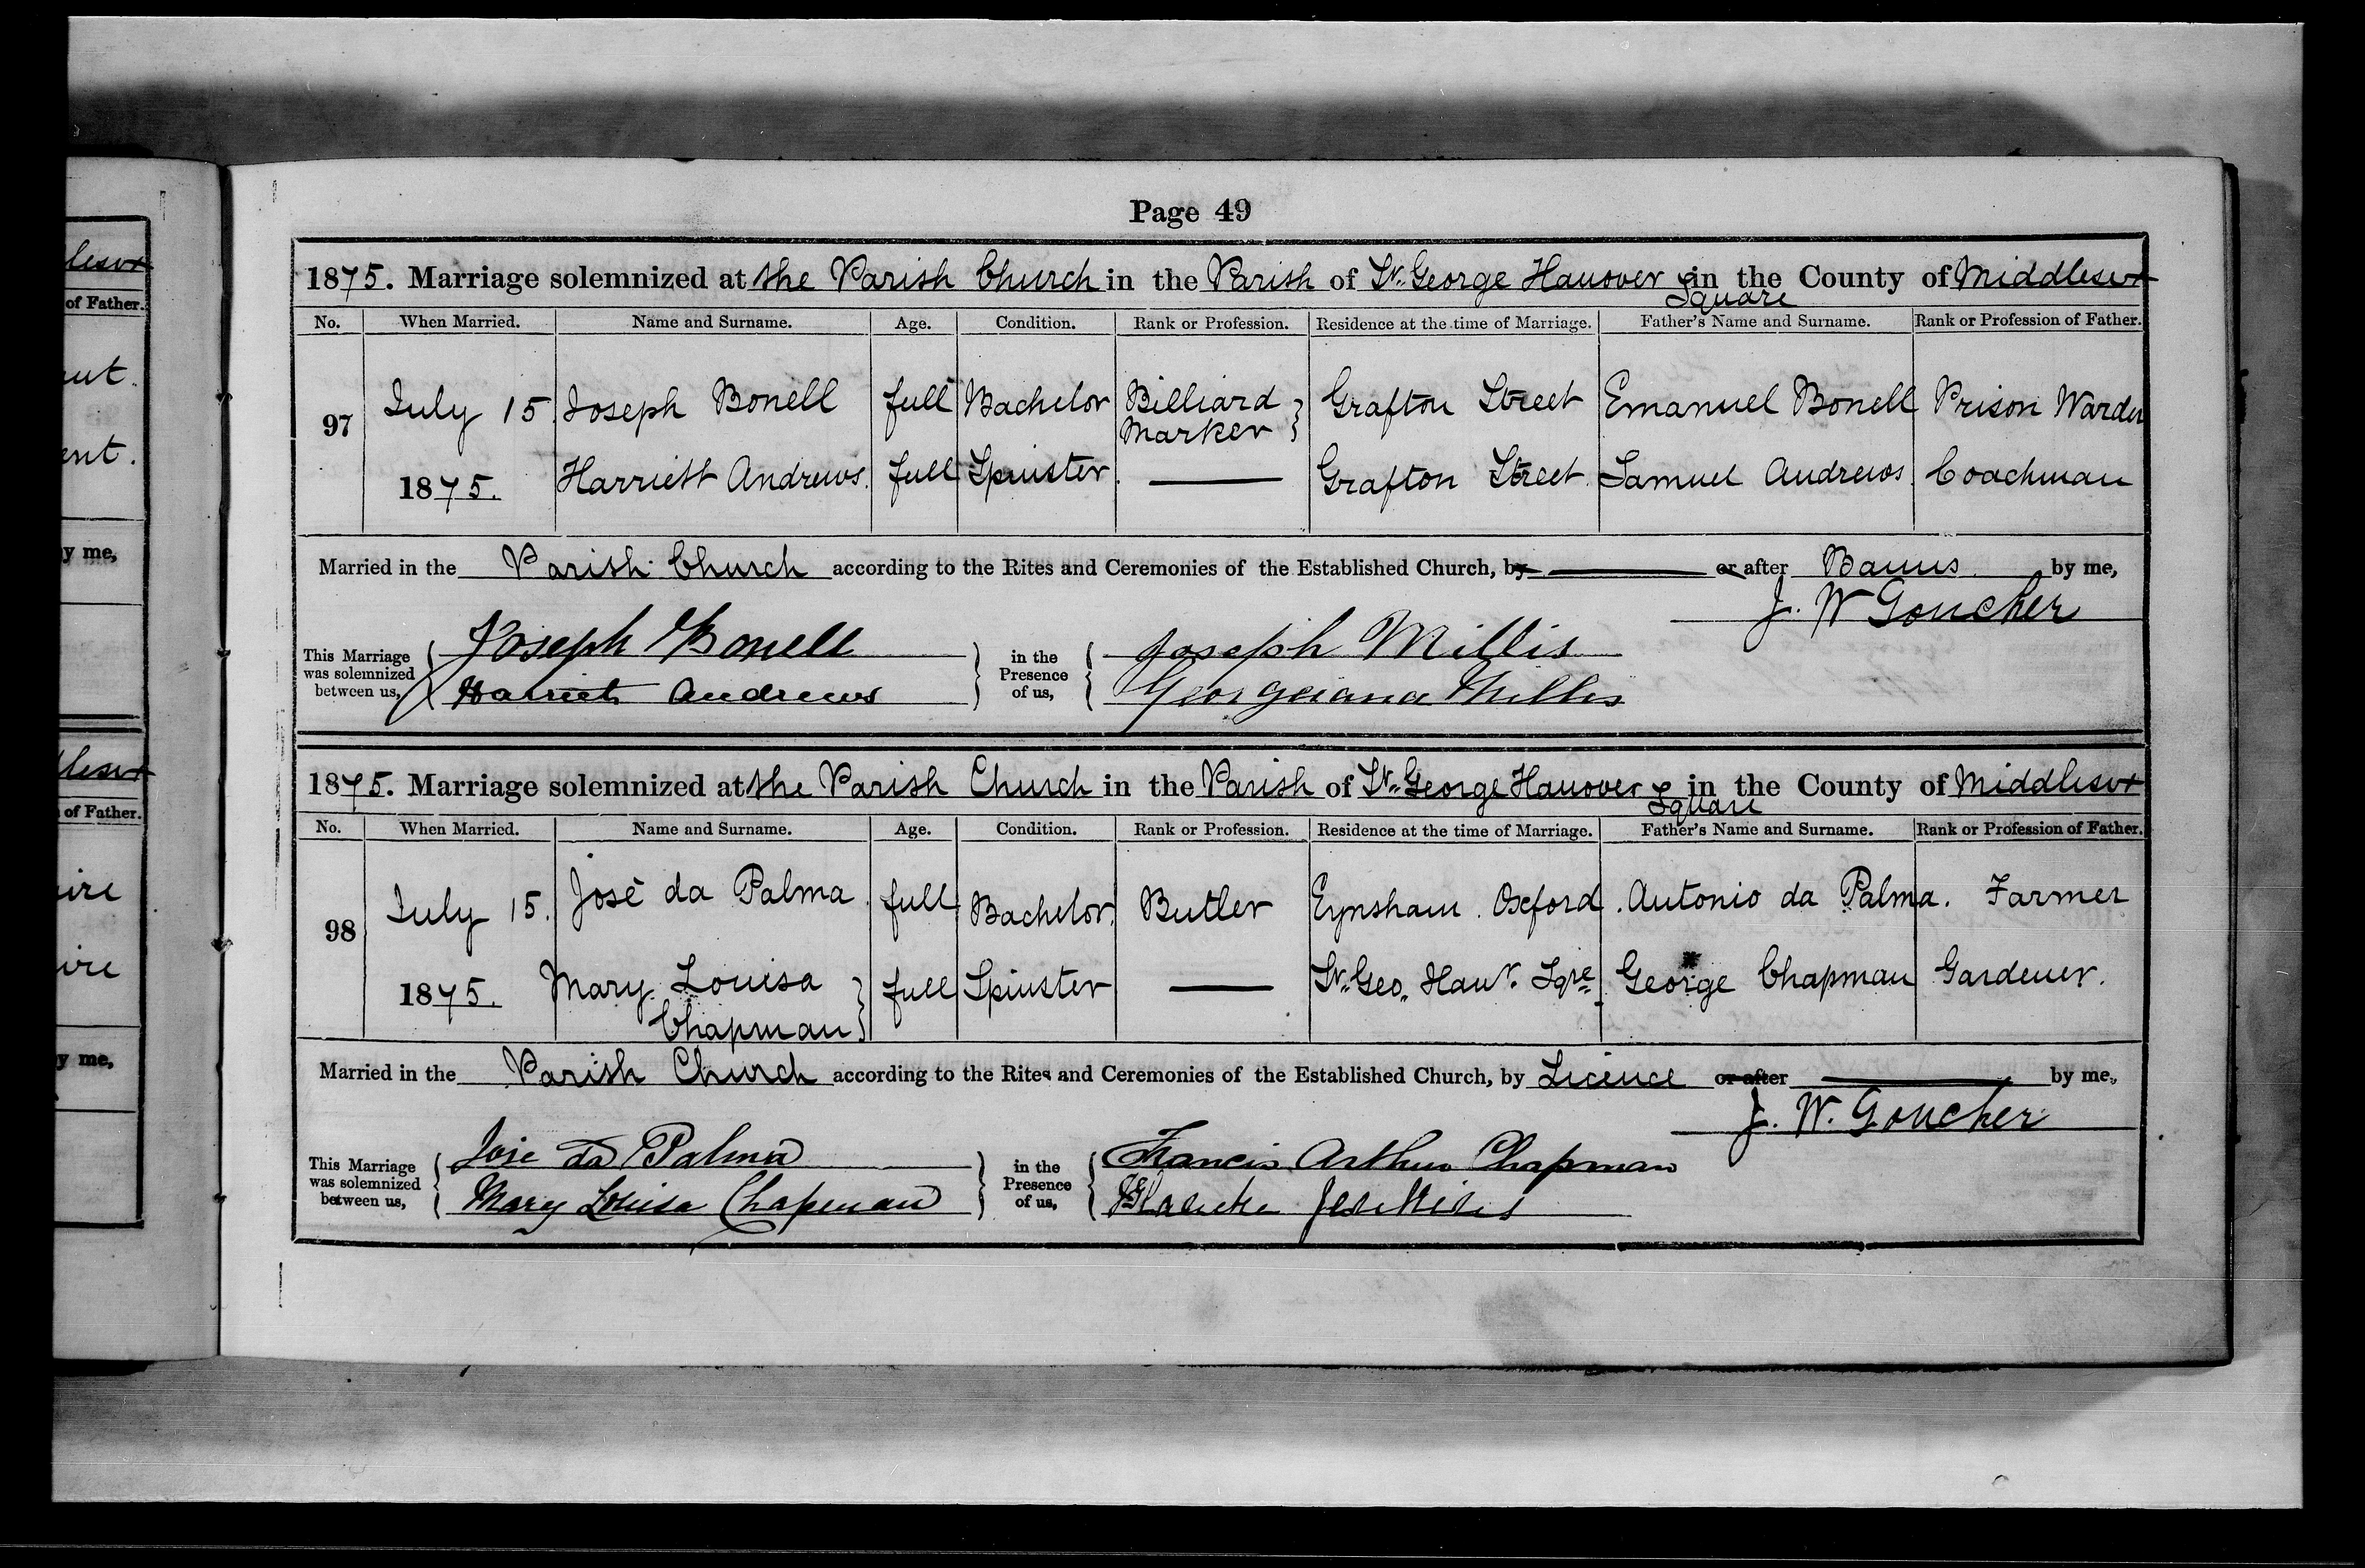 Page 49
1875. Marriage solemnized at the Parish Church in the Parish of St. George Hanover Square in the County of Middlesex
No. When Married. Name and Surname. Age. Condition. Rank or Profession. Residence at the time of Marriage. Father's Name and Surname. Rank or Profession of Father.
97 July 15 Joseph Bonell full Bachelor Billiard Marker Grafton Street Emanuel Bonell Prison Warder
1875. Harriett Andrews. full Spinster. Grafton Street. Samuel Andrews. Coachman
Married in the Parish Church according to the Rites and Ceremonies of the Established Church, by or after Banns by me,
J. W Goucher
This Marriage was solemnized between us, Joseph Bonell in the Presence of us, Joseph Millis
Harriet Andrews Georgeiana Millis
1875. Marriage solemnized at the Parish Church in the Parish of St. George Hanover Square in the County of Middlesex
No. When Married. Name and Surname. Age. Condition. Rank or Profession. Residence at the time of Marriage. Father's Name and Surname. Rank or Profession of Father.
98 July 15. José da Palma. full Bachelor. Butler Eynsham. Oxford. Antonio da Palma. Farmer
1875. Mary Louisa Chapman full Spinster St. Geo. Hanr. Sqre. George Chapman Gardener.
Married in the Parish Church according to the Rites and Ceremonies of the Established Church, by Licence or after by me,
J. W. Goucher
This Marriage was solemnized between us, Jose da Palma in the Presence of us, Francis Arthur Chapman
Mary Louisa Chapman Blanche Jenkins
lesex
of Father.
ent.
y me,
lesex
of Father.
ire
ire
y me,